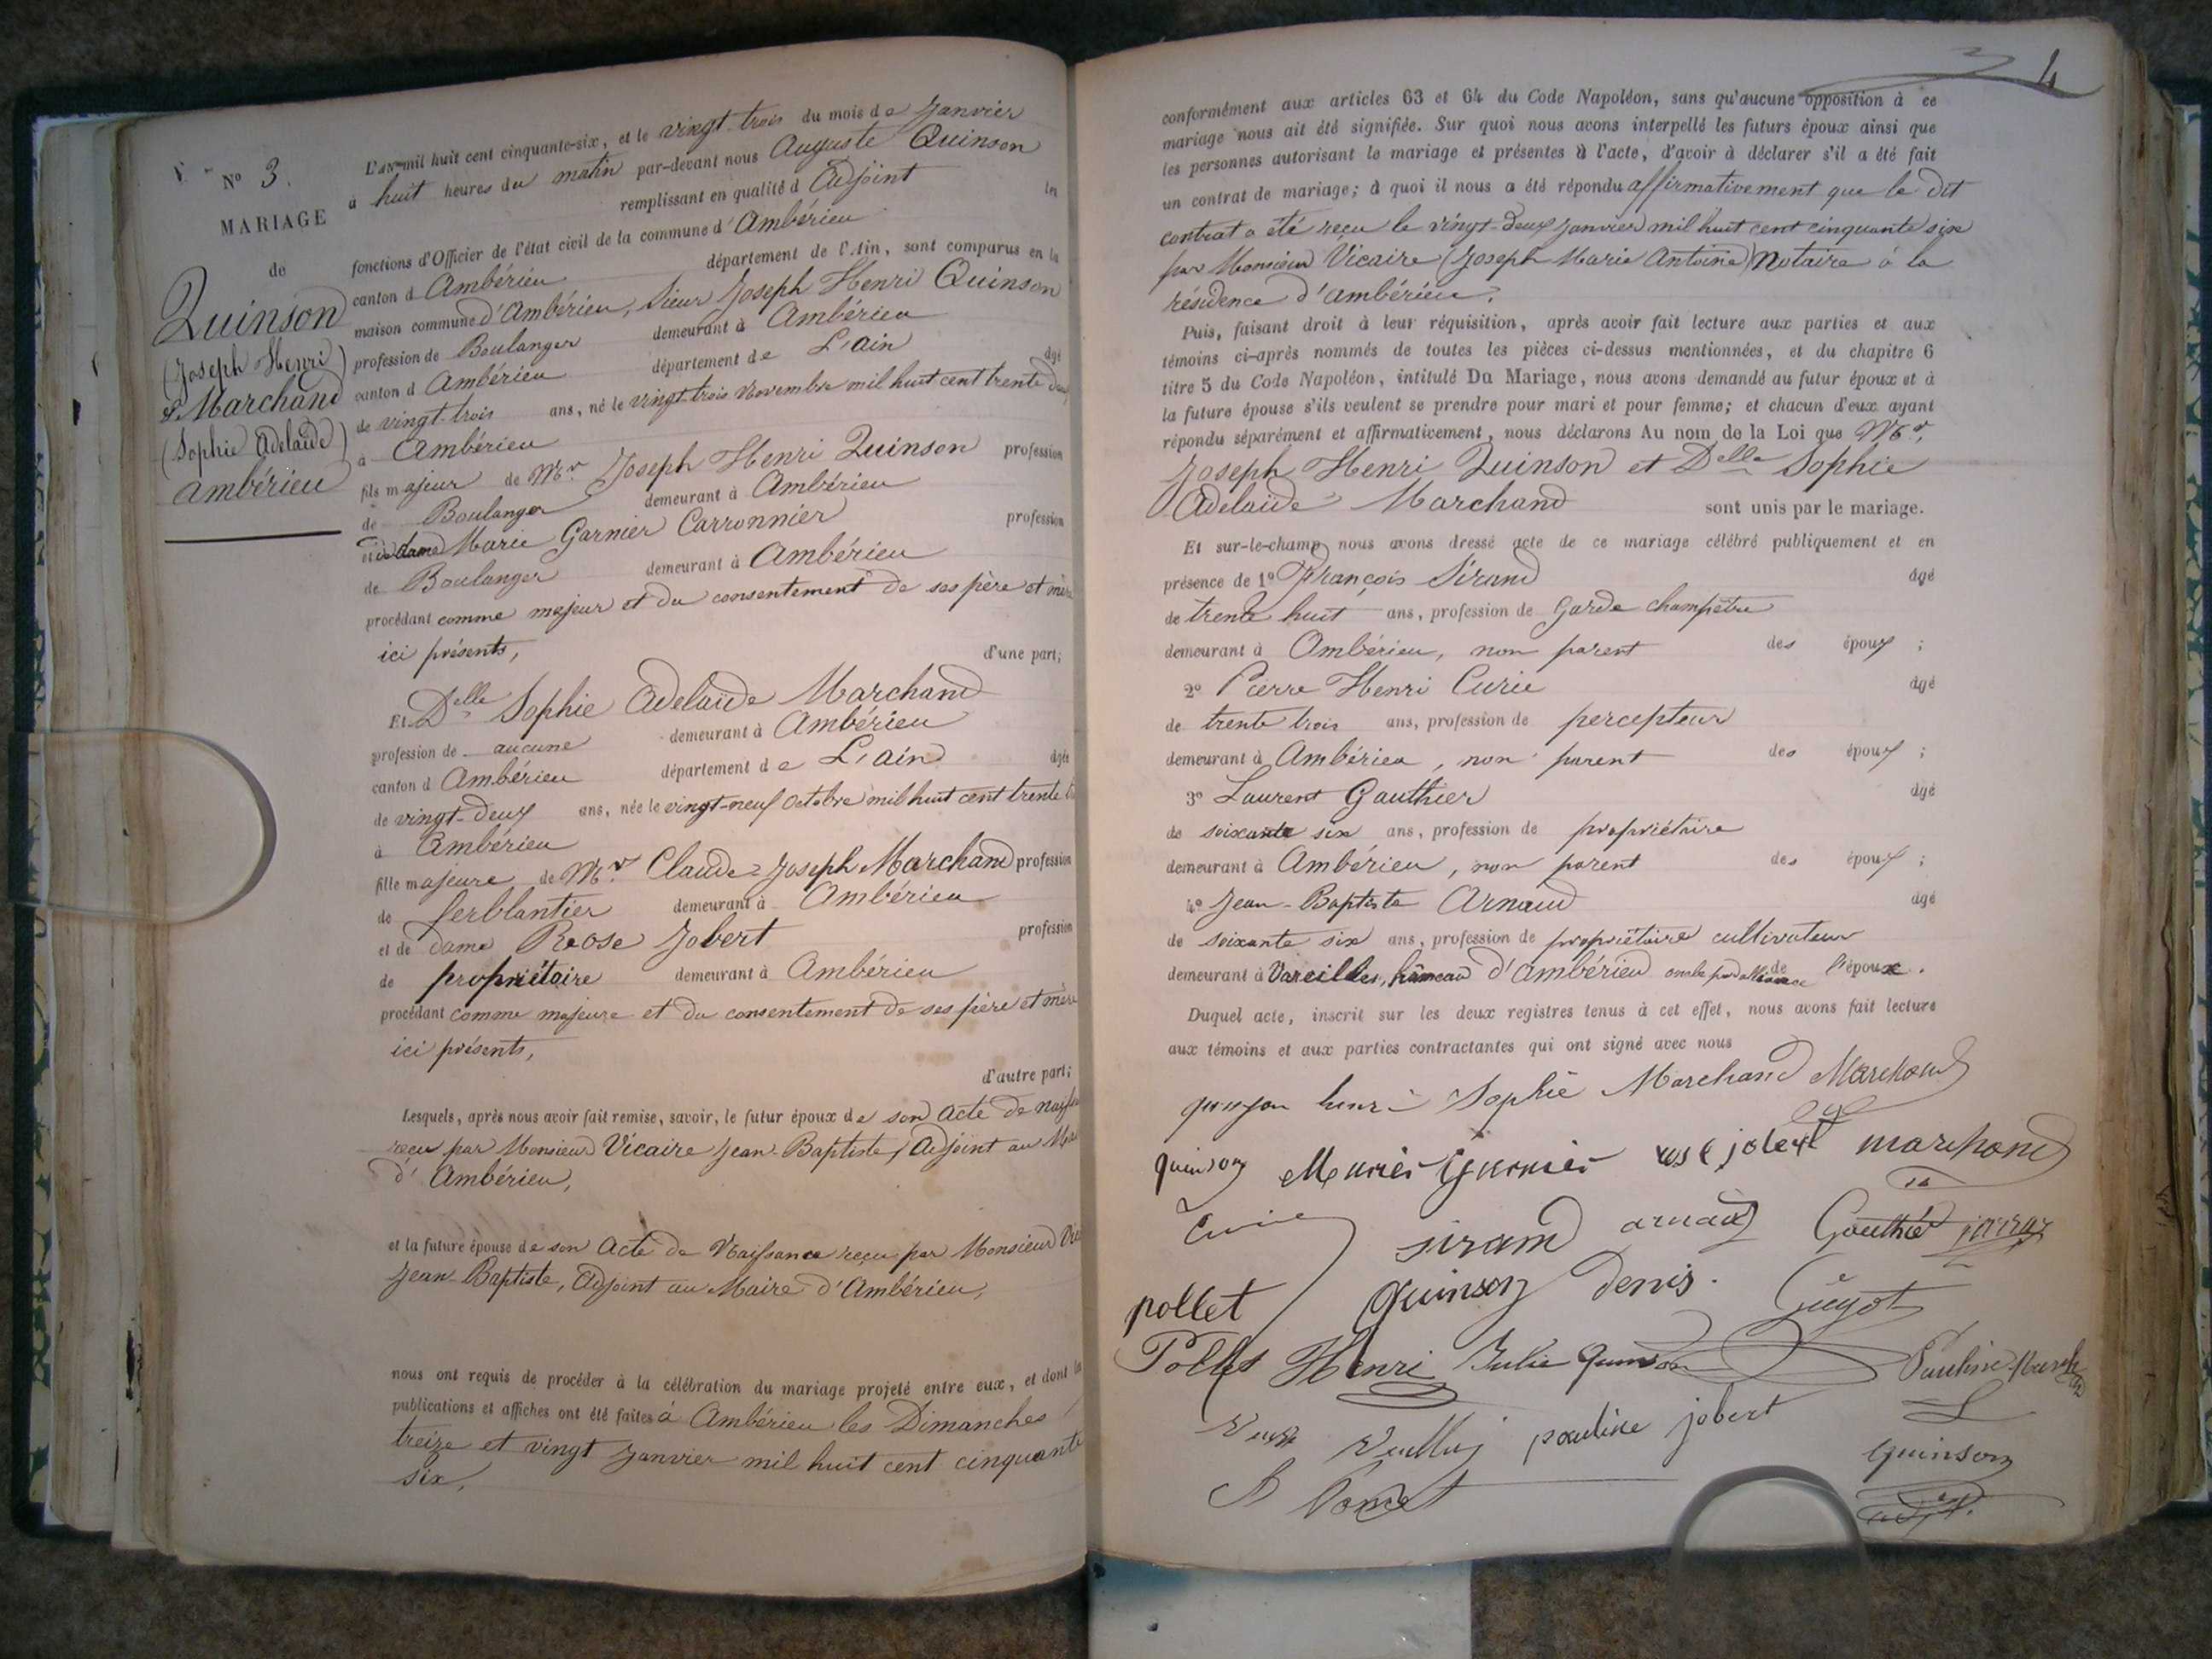 N° 3.
MARIAGE
de
Quinson
(Joseph Henri)
& Marchand
(Sophie Adelaïde)
Ambérieu
L'an mil huit cent cinquante-six, et le vingt-trois du mois de Janvier
à huit heures du matin par-devant nous Auguste Quinson
remplissant en qualité d'Adjoint les
fonctions d'Officier de l'état civil de la commune d'Ambérieu
canton d'Ambérieu département de l'Ain, sont comparus en la
maison commune d'Ambérieu, Sieur Joseph Henri Quinson
profession de Boulanger demeurant à Ambérieu
canton d'Ambérieu département de L'ain âgé
de vingt-trois ans, né le vingt-trois Novembre mil huit cent trente deux
à Ambérieu
fils majeur de Mr. Joseph Henri Quinson profession
de Boulanger demeurant à Ambérieu
et de dame Marie Garnier Carronnier profession
de Boulanger demeurant à Ambérieu
procédant comme majeur et du consentement de ses père et mère
ici présents,
d'une part;
Et Delle Sophie Adelaïde Marchand
profession de aucune demeurant à Ambérieu
canton d'Ambérieu département de L'ain âgée
de vingt-deux ans, née le vingt-neuf octobre mil huit cent trente
à Ambérieu
fille majeure de Mr. Claude-Joseph Marchand profession
de ferblantier demeurant à Ambérieu
et de dame Rose Jobert profession
de propriétaire demeurant à Ambérieu
procédant comme majeure et du consentement de ses père et mère
ici présents,
d'autre part;
Lesquels, après nous avoir fait remise, savoir, le futur époux de son acte de
reçu par Monsieur Vicaire Jean-Baptiste, Adjoint au
d'Ambérieu,
et la future épouse de son Acte de Naissance reçu par Monsieur
Jean-Baptiste, Adjoint au Maire d'Ambérieu,
nous ont requis de procéder à la célébration du mariage projeté entre eux, et dont les
publications et affiches ont été faites à Ambérieu les Dimanches
treize et vingt Janvier mil huit cent cinquante
six,
4
conformément aux articles 63 et 64 du Code Napoléon, sans qu'aucune opposition à ce
mariage nous ait été signifiée. Sur quoi nous avons interpellé les futurs époux ainsi que
les personnes autorisant le mariage et présentes à l'acte, d'avoir à déclarer s'il a été fait
un contrat de mariage; à quoi il nous a été répondu affirmativement que le dit
contrat a été reçu le vingt-deux janvier mil huit cent cinquante six
par Monsieur Vicaire (Joseph Marie Antoine) Notaire à la
résidence d'ambérieu.
Puis, faisant droit à leur réquisition, après avoir fait lecture aux parties et aux
témoins ci-après nommés de toutes les pièces ci-dessus mentionnées, et du chapitre 6
titre 5 du Code Napoléon, intitulé Du Mariage, nous avons demandé au futur époux et à
la future épouse s'ils veulent se prendre pour mari et pour femme; et chacun d'eux ayant
répondu séparément et affirmativement, nous déclarons Au nom de la Loi que Mr.
Joseph Henri Quinson et Delle Sophie
Adelaïde Marchand sont unis par le mariage.
Et sur-le-champ nous avons dressé acte de ce mariage célébré publiquement et en
présence de 1° François Sirand âgé
de trente huit ans, profession de Garde champêtre
demeurant à Ambérieu, non parent des époux ;
2° Pierre Henri Curie âgé
de trente trois ans, profession de percepteur
demeurant à Ambérieu, non parent des époux ;
3° Laurent Gauthier âgé
de soixante six ans, profession de propriétaire
demeurant à Ambérieu, non parent des époux ;
4° Jean-Baptiste Arnaud âgé
de soixante six ans, profession de propriétaire cultivateur
demeurant à Vareilles, hâmeau d'Ambérieu oncle par alliance de l'époux.
Duquel acte, inscrit sur les deux registres tenus à cet effet, nous avons fait lecture
aux témoins et aux parties contractantes qui ont signé avec nous
quinson henri Sophie Marchand Marchand
quinson Marie Garnier rose jobert marchand
Curie sirand arnaud Gauthié
pollet quinson denis. Guyot
Henri Julie Quinson Pauline March
pauline jobert
quinson